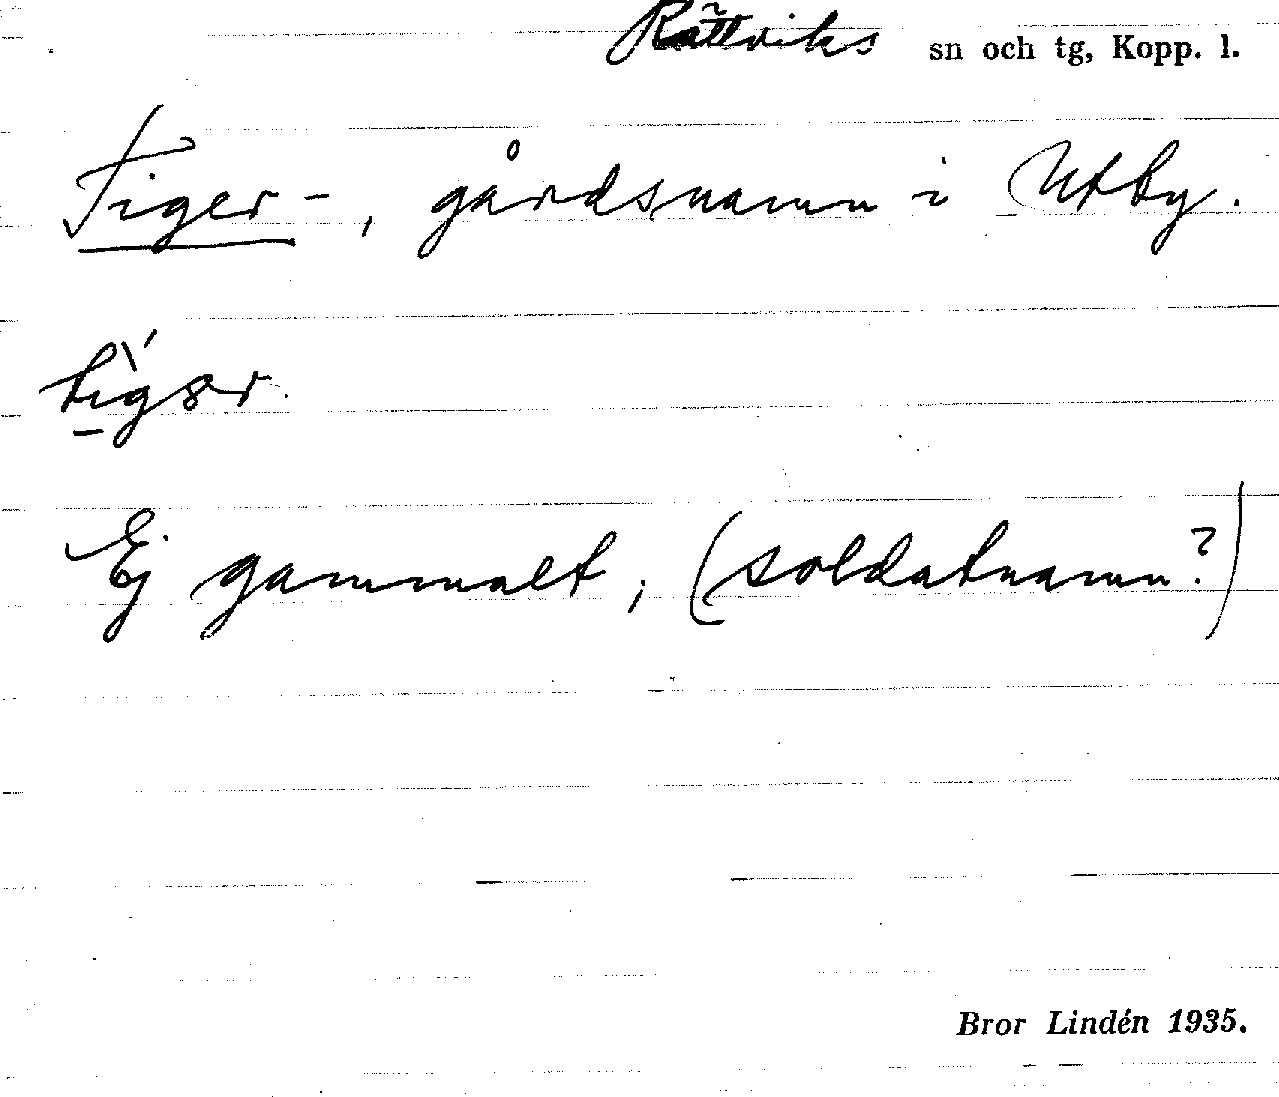 Rättviks sn och tg, Kopp. l.
Tiger-, gårdsnamn i Utby.
Ej gammalt, (soldatnamn?)
Bror Lindén 1935.